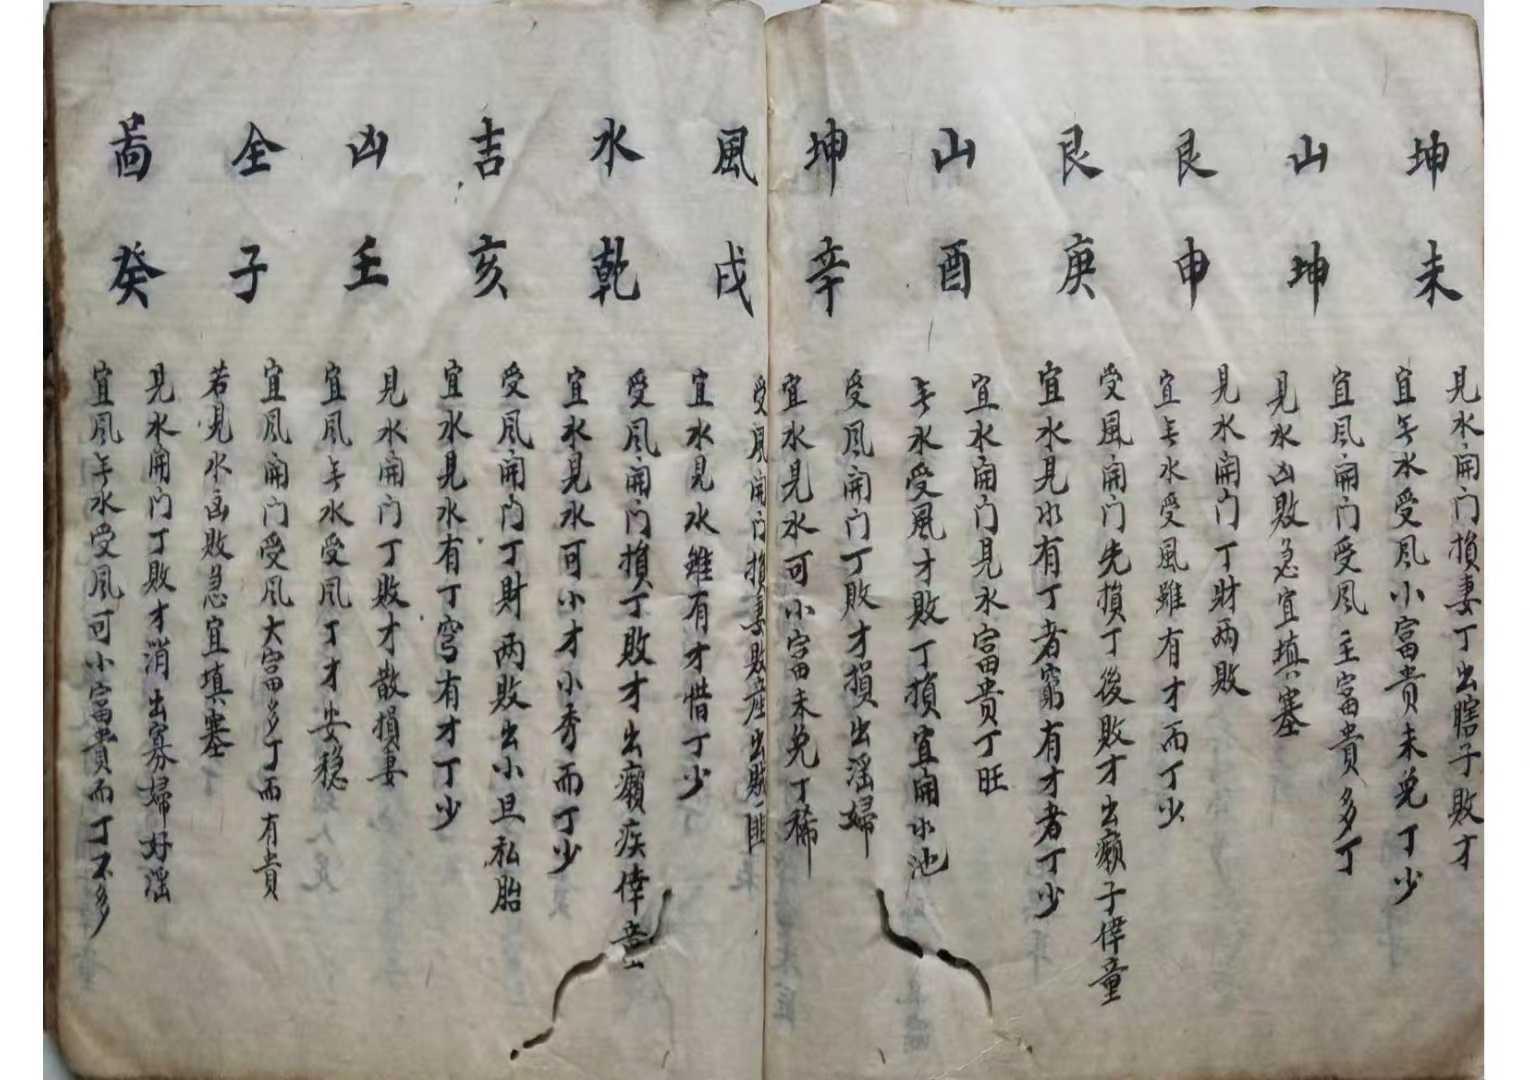 坤山艮艮山坤風水吉凶全啚
未
坤
申
庚
酉
辛
戌
乾
亥
壬
子
癸
見水開门損妻丁出瞎子敗才
宜無水受風小富貴未免丁少
宜風開门受風主富貴多丁
見水凶敗急宜填塞
見水開门丁財兩敗
宜無水受風雖有才而丁少
受風開门先損丁後敗才出癩子偉童
宜水見水有丁者窮有才者丁少
宜水開门見水富貴丁旺
無水受風才敗丁損宜開水池
受風開门丁敗才損出滛婦
宜水見水可小富未免丁稀
受風開门損妻敗產出賊匪
宜水見水雖有才惜丁少
受風開门損丁敗才出癩疾偉童
宜水見水可小才小秀而丁少
受風開门丁財兩敗出小旦私胎
宜水見水有丁穹有才丁少
見水開门丁敗才散損妻
宜風無水受風丁才安穏
宜風開门受風大富多丁而有貴
若見水凶敗急宜填塞
見水開门丁敗才消出寡婦好滛
宜風無水受風可小富貴而丁不多